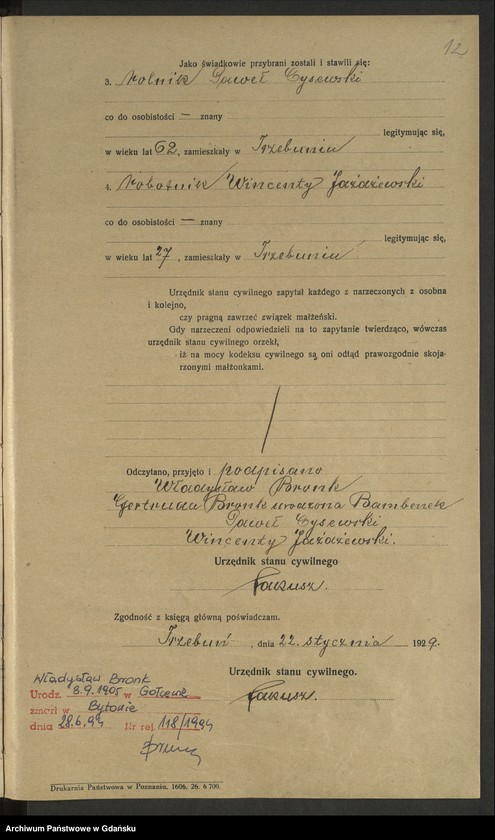 12
Jako świadkowie przybrani zostali i stawili się:
3. Rolnik Paweł Cysewski
co do osobistości — znany
legitymując się,
w wieku lat 62, zamieszkały w Trzebuniu
4. Robotnik Wincenty Jażdżewski
co do osobistości — znany
legitymując się,
w wieku lat 27, zamieszkały w Trzebuniu
Urzędnik stanu cywilnego zapytał każdego z narzeczonych z osobna
i kolejno,
czy pragną zawrzeć związek małżeński.
Gdy narzeczeni odpowiedzieli na to zapytanie twierdząco, wówczas
urzędnik stanu cywilnego orzekł,
iż na mocy kodeksu cywilnego są oni odtąd prawozgodnie skoja-
rzonymi małżonkami.
Odczytano, przyjęto i podpisano
Władysław Bronk
Gertruda Bronk urodzona Bambenek
Paweł Cysewski
Wincenty Jażdżewski.
Urzędnik stanu cywilnego
Zgodność z księgą główną poświadczam.
Trzebuń, dnia 22. stycznia 1929.
Urzędnik stanu cywilnego.
Władysław Bronk
Urodz. 8.9.1905 w
zmarł w Bytonia
dnia 28.6.94 Nr rej. 118/1994
Drukarnia Państwowa w Poznaniu. 1606. 26. 6 700.
Archiwum Państwowe w Gdańsku